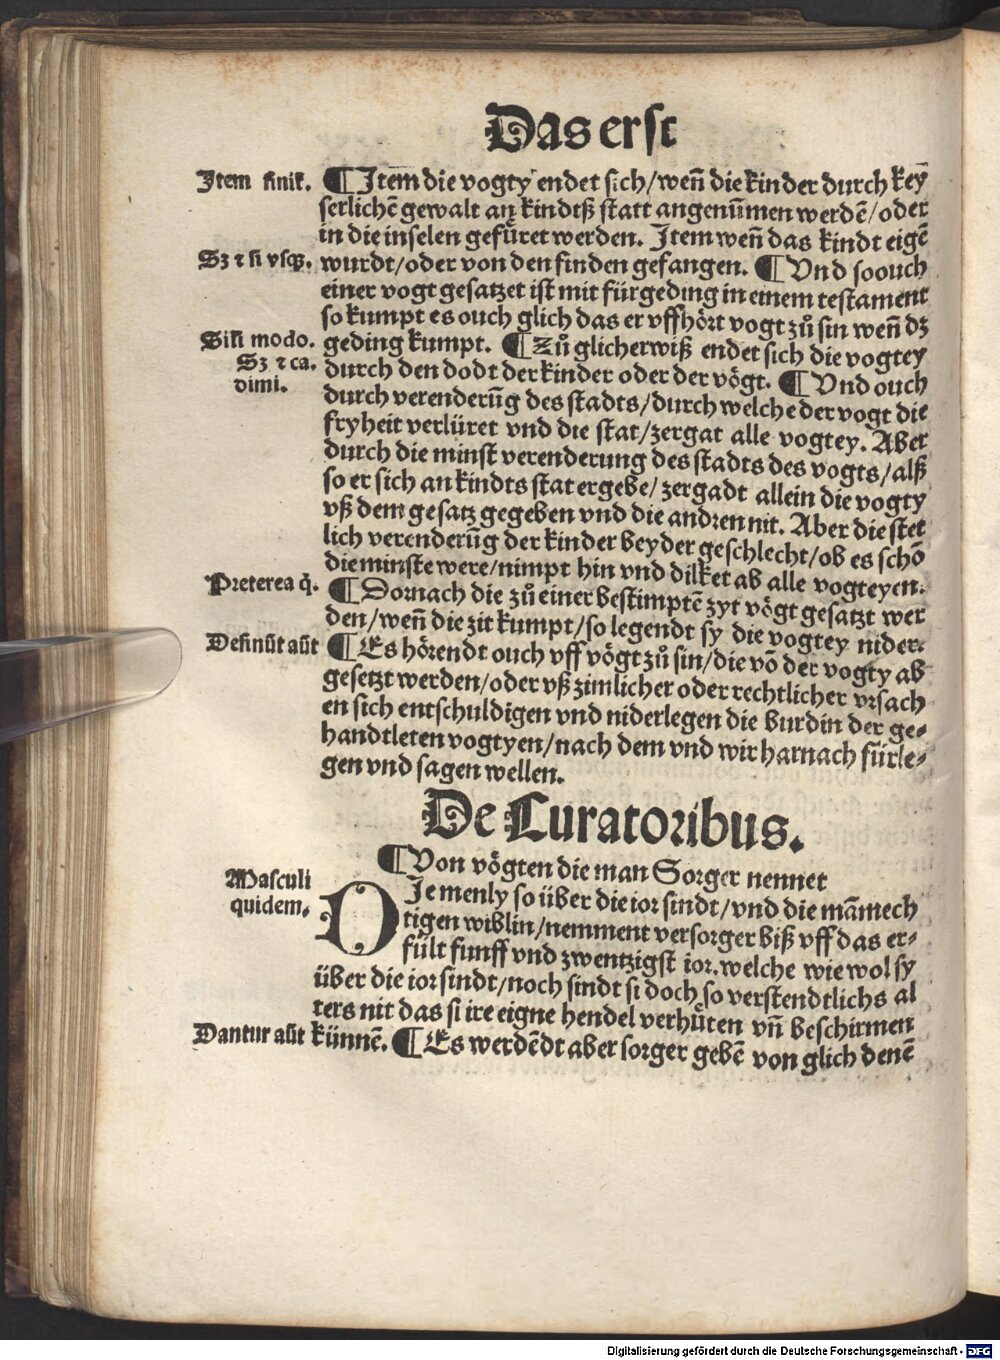 Das erst
Item finit. ¶ Itẽm die vogty endet sich/weñ die kinder durch keỹ
serlichẽ gewalt an kindtß statt angenũmen werdẽ/oder
in die inselen gefüret werden. Item weñ das kindt eigẽ
Sz ⁊ si vsqꝫ. wurdt/oder von den finden gefangen. ¶ Vnd so ouch
einer vogt gesatzet ist mit fürgeding in einem testament
so kumpt es ouch glich das er vffhört vogt zů sin weñ dz
Sili modo. geding kumpt. ¶ Zů glicherwiß endet sich die vogtey
Sz ⁊ ca. durch den dodt der kinder oder der vögt. ¶ Vnd ouch
dimi. durch verenderũg des stadts/durch welche der vogt die
fryheit verlüret vnd die stat/zergat alle vogtey. Aber
durch die minst verenderung des stadts des vogts/alß
so er sich an kindts stat ergebe/zergadt allein die vogty
vß dem gesatz gegeben vnd die andren nit. Aber die stet
lich verenderũg der kinder beyder geschlecht/ob es schõ
die minste were/nimpt hin vnd dilket ab alle vogteyen.
Preterea q̃. ¶ Dornach die zů einer bestimptẽ zyt vögt gesatzt wer
den/weñ die zit kumpt/so legendt sy die vogtey nider.
Definũt aũt ¶ Es hörendt ouch vff vögt zů sin/die võ der vogty ab
gesetzt werden/oder vß zimlicher oder rechtlicher vrsach
en sich entschuldigen vnd niderlegen die burdin der ge⸗
handtleten vogtyen/nach dem vnd wir harnach fürle⸗
gen vnd sagen wellen.
De Curatoribus.
¶ Von vögten die man Sorger nennet
Masculi DIe menly so über die ior sindt/vnd die mãmech
quidem. tigen wiblin/nemment versorger biß vff das er⸗
fült funff vnd zwentzigst ior. welche wie wol sy
über die ior sindt/noch sindt si doch so verstendtlichs al
ters nit das si ire eigne hendel verhůten vñ beschirmen
Dantur aũt künnẽ. ¶ Es werdẽdt aber sorger gebẽ von glich denẽ
Digitalisierung gefördert durch die Deutsche Forschungsgemeinschaft - DFG